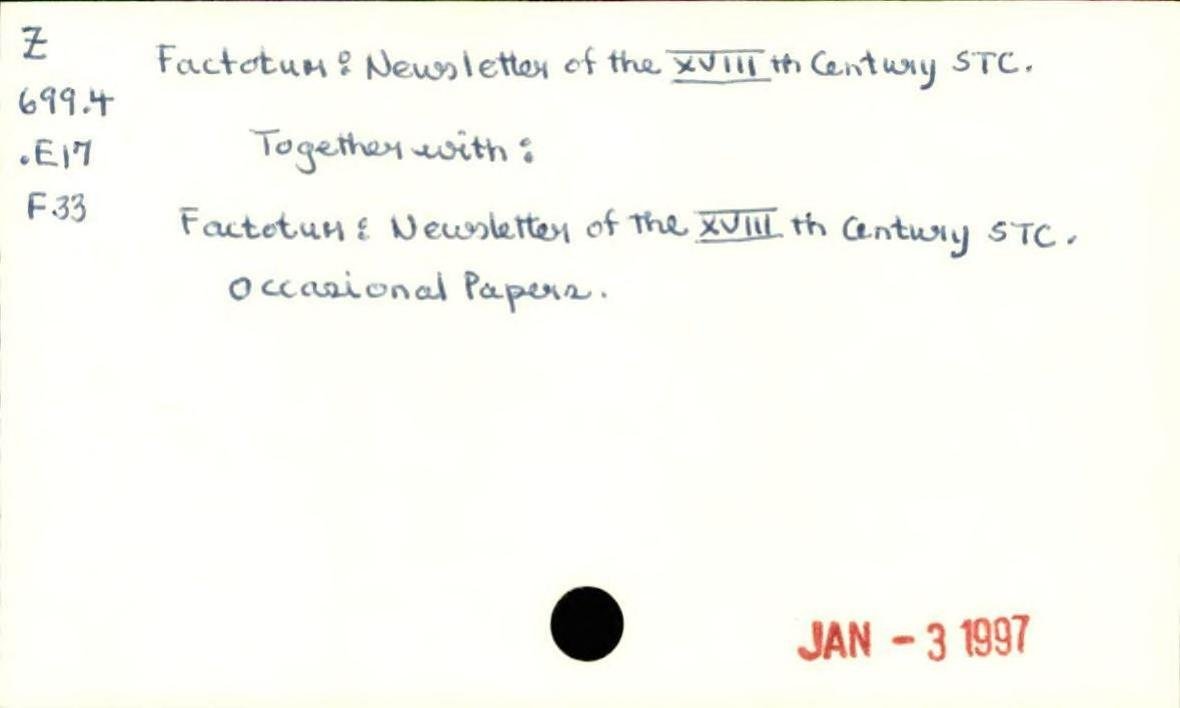 Z
699.4
.E17
F33
Factotum : Newsletter of the XVIII th Century STC.
Together with :
Factotum : Newsletter of the XVIII th Century STC.
Occasional Papers.
JAN - 3 1997